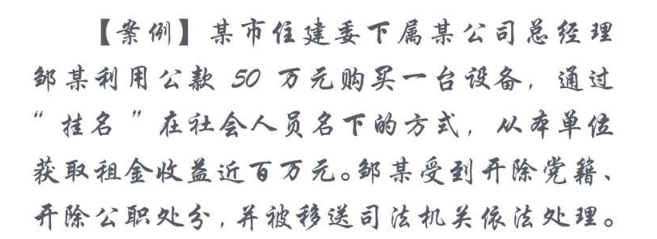 【案例】某市住建委下属某公司总经理
邹某利用公款 50 万元购买一台设备，通过
“挂名 ”在社会人员名下的方式，从本单位
获取租金收益近百万元。邹某受到开除党籍、
开除公职处分，并被移送司法机关依法处理。